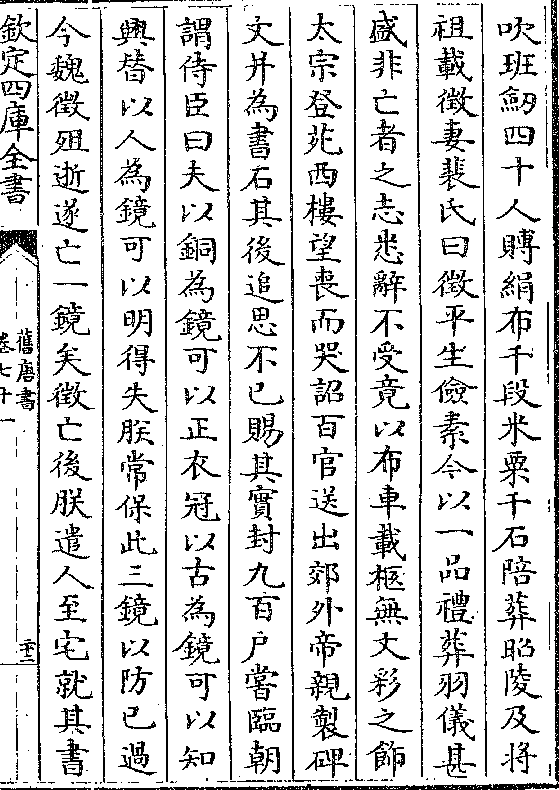 吹班劒四十人賻絹布千段米粟千石陪葬昭陵及將
祖載徵妻裴氏曰徵平生儉素今以一品禮葬羽儀甚
盛非亡者之志悉辭不受竟以布車載柩無文彩之飾
太宗登苑西樓望喪而哭詔百官送出郊外帝親製碑
文并為書石其後追思不已賜其實封九百户嘗臨朝
謂侍臣曰夫以銅為鏡可以正衣冠以古為鏡可以知
興替以人為鏡可以明得失朕常保此三鏡以防已過
今魏徵殂逝遂亡一鏡矣徵亡後朕遣人至宅就其書
欽定四庫全書
舊唐書
卷七十一
二十二